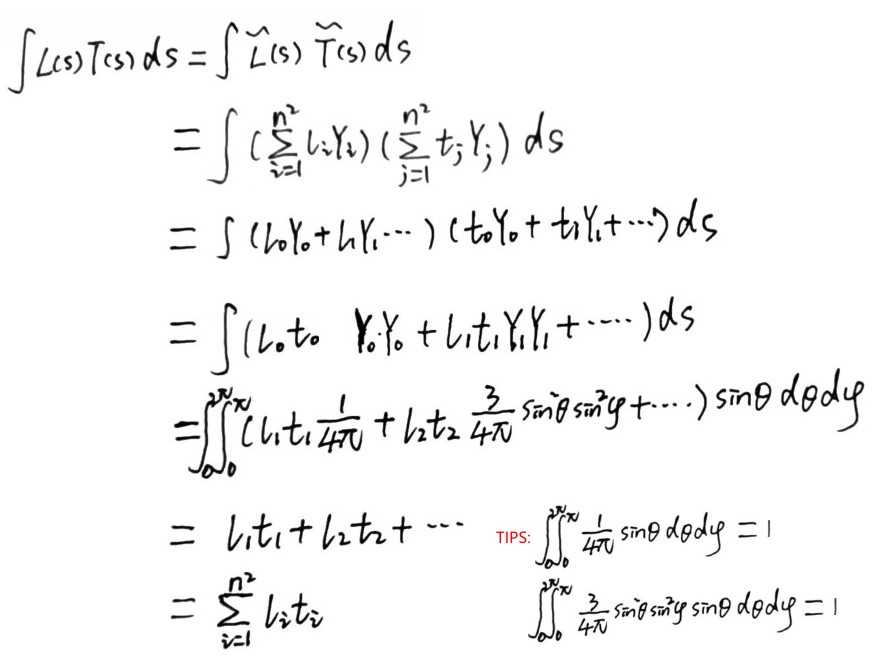 ∫L(s)T(s)ds = ∫L̃(s) T̃(s)ds
= ∫(∑_{i=1}^{n²} l_iY_i)(∑_{j=1}^{n²} t_jY_j) ds
= ∫(l₀Y₀+l₁Y₁···)(t₀Y₀+t₁Y₁+···)ds
= ∫(l₀t₀ Y₀Y₀+l₁t₁Y₁Y₁+·····)ds
= ∫₀^{2π}∫₀^{π}(l₁t₁ 1/4π + l₂t₂ 3/4π sin²θ sin²φ+····) sinθ dθdφ
= l₁t₁+l₂t₂+ ··· TIPS: ∫₀^{2π}∫₀^{π} 1/4π sinθ dθdφ = 1
= ∑_{i=1}^{n²} l_it_i ∫₀^{2π}∫₀^{π} 3/4π sin²θ sin²φ sinθ dθdφ = 1